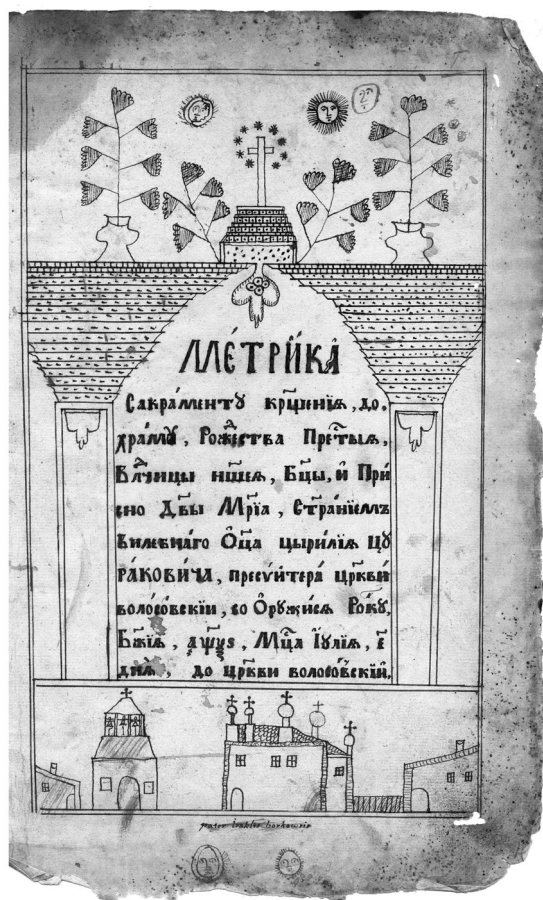 МЕ́ТРИ́КА
Сакра́менту крщ҃енїя, до,
хра́му, Рожⷣества Прет҃ыя,
Влⷣчицы нш҃ея, Бц҃ы, и҆ При
сно Дв҃ы Мр҃їа, Стра́нїемъ
Ѻ҆ц҃а цырилїя Цу
рако́вича, пресви́тера́ црк҃ви́
воло́совскїи, во Рокꙋ,
Бж҃їя, ҂аѱчѕ, Мц҃а І҆у́лїя, є҃
дня, до црк҃ви воло́со́вскїй,